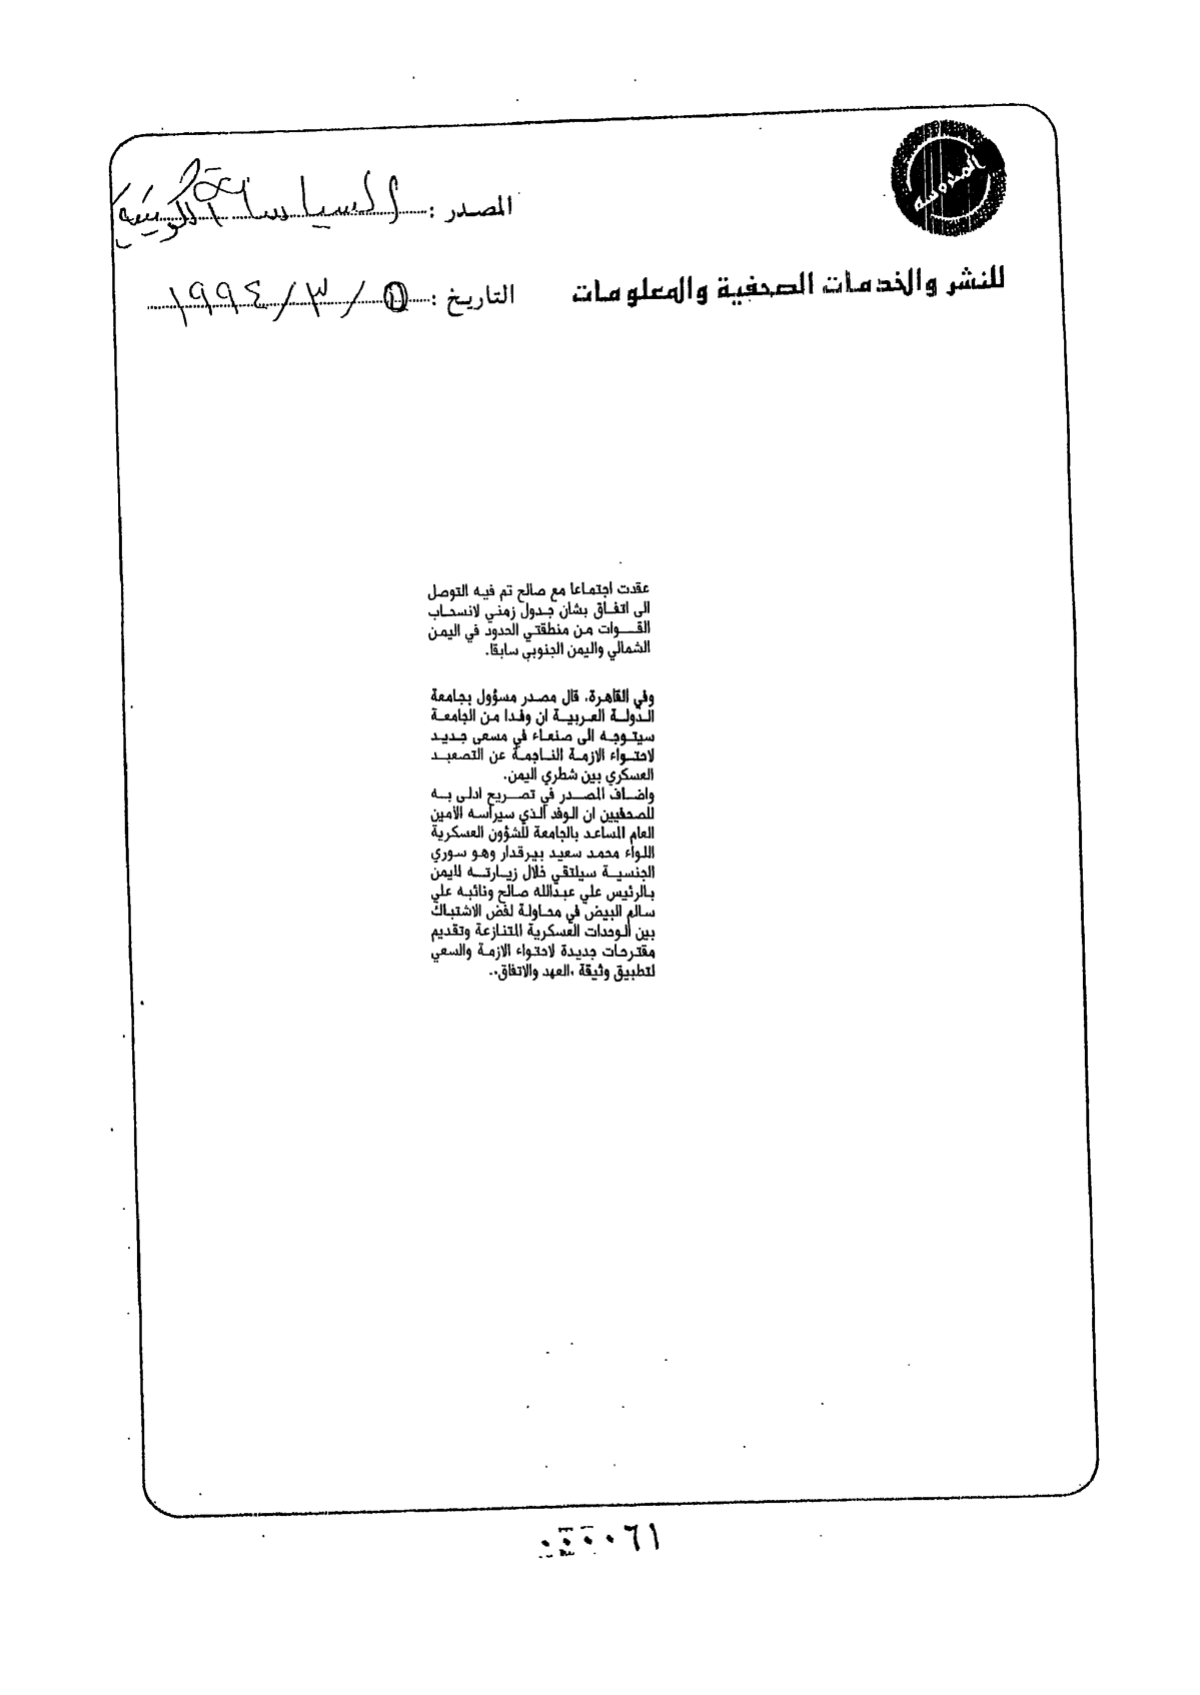 المدروسه
المصدر : السياسة الكويتية
للنشر والخدمات الصحفية والمعلومات
التاريخ : /٣/١٩٩٤
عقدت اجتماعا مع صالح تم فيه التوصل
الى اتفاق بشان جدول زمني لانسحاب
القوات من منطقتي الحدود في اليمن
الشمالي واليمن الجنوبي سابقا.
وفي القاهرة، قال مصدر مسؤول بجامعة
الدولة العربية ان وفدا من الجامعة
سيتوجه الى صنعاء في مسعى جديد
لاحتواء الازمة الناجمة عن التصعيد
العسكري بين شطري اليمن.
واضاف المصدر في تصريح ادلى به
للصحفيين ان الوفد الذي سيراسه الأمين
العام المساعد بالجامعة للشؤون العسكرية
اللواء محمد سعيد بيرقدار وهو سوري
الجنسية سيلتقي خلال زيارته لليمن
بالرئيس علي عبدالله صالح ونائبه علي
سالم البيض في محاولة لفض الاشتباك
بين الوحدات العسكرية المتنازعة وتقديم
مقترحات جديدة لاحتواء الازمة والسعي
لتطبيق وثيقة .العهد والاتفاق..
٠٠٠٠٦١